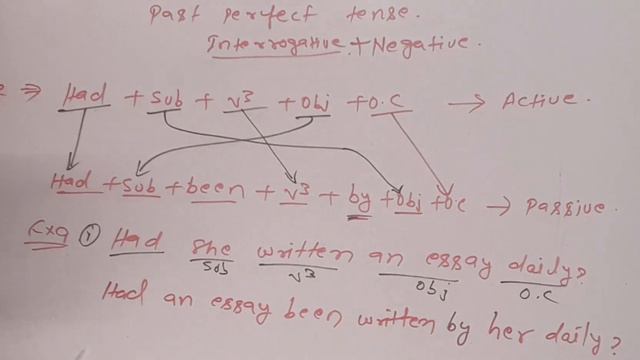 Past perfect tense.
Interrogative + Negative.
⇒ Had + Sub + v³ + obj + o.c → Active.
Had + Sub + been + v³ + by + obj + o.c → passive.
Exa ① Had she written an essay daily?
Sub v³ obj o.c
Had an essay been written by her daily?